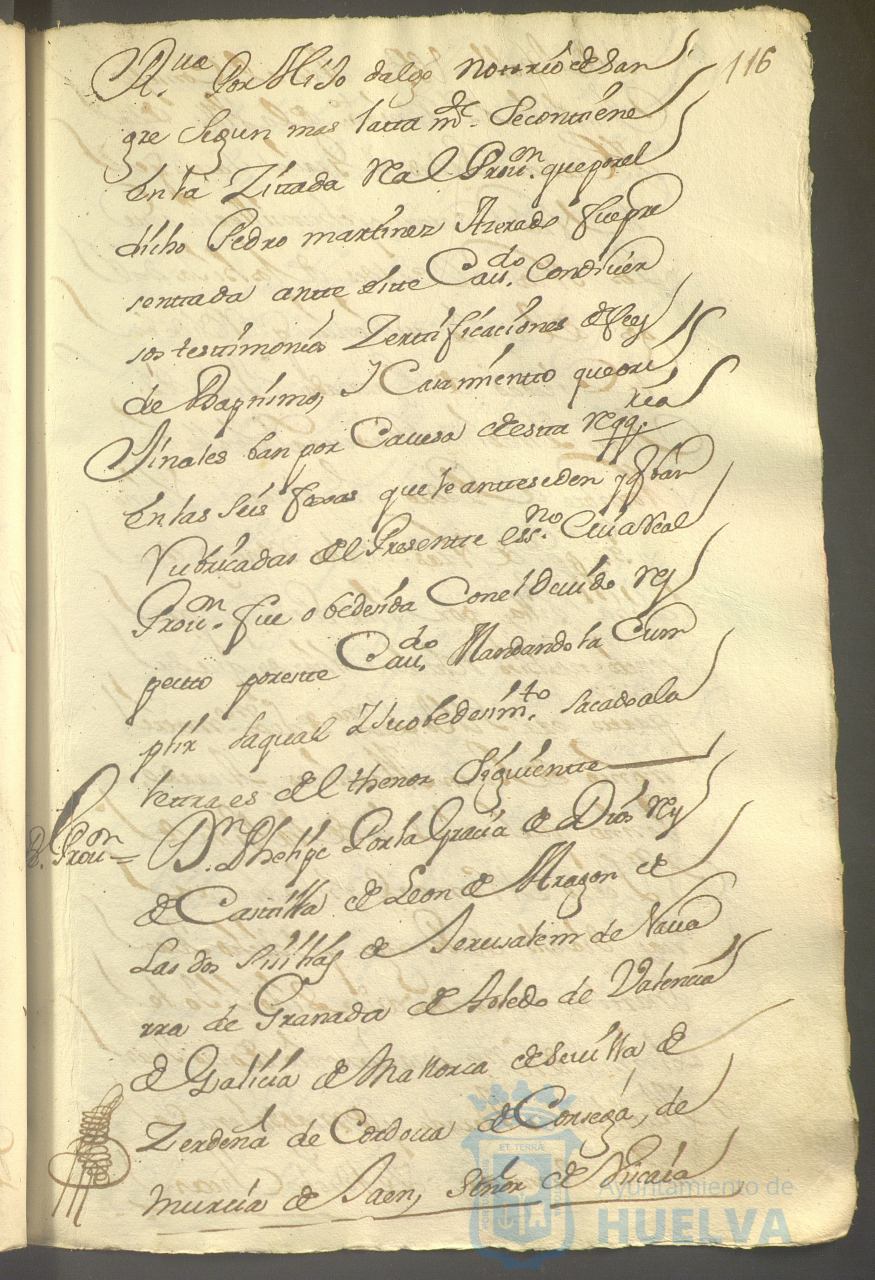 116
R.ⁿᵃ Por Hijo dalgo Notorio de San
gre segun mas latta m.ᵗᵉ Secontiene
En la Zittada Real Proui.ᵒⁿ que por el
dicho Pedro martinez Azerado fue pre
senttada antte Este Cau.ᵈᵒ Con diuer
sos testtimonios Zerttificaciones de fees
de Baptismo, y Casamientto que ori
Jinales ban por Cauesa de estta
En las seis foxas que le antteseden y ban
Rubricadas del Presentte Ess.ⁿᵒ Cuia Real
Proui.ᵒⁿ fue obedesida Con el Deuido res
pectto por este Cau.ᵈᵒ Mandandola Cum
plir la qual y su obedesim.ᵗᵒ sacado a la
lettra es del thenor Siguientte
R. Proui.ᵒⁿ = D.ⁿ Phelipe Por la Gracia de Dios Rey
de Casttilla de Leon de Aragon de
Las dos Sisilias de Jerusalem de Naua
rra de Granada de toledo de Valencia
de Galicia de Mallorca de Seuilla de
Zerdeña de Cordoua de Corsega, de
Murcia de Jaen, Señor de Vizcaia
ET TERRÆ
Ayuntamiento de
HUELVA